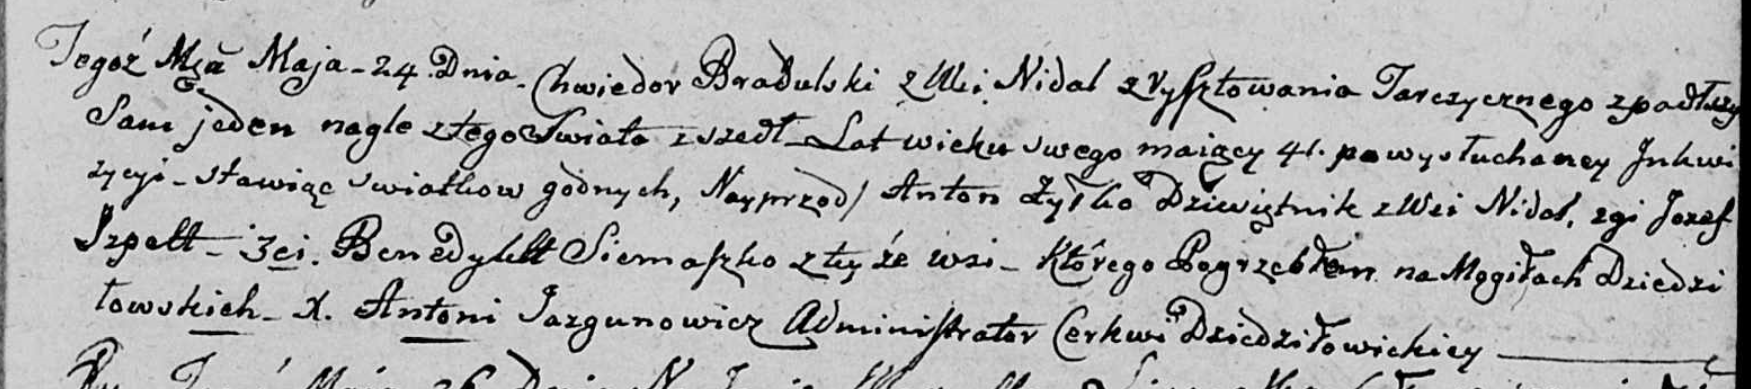 Tegoż Mca Maja - 24 Dnia - Chwiedor Bradulski z Wsi Nidal z Ryſztowania Tarczycznego zpadłszy
Sam jeden nagle z tego Swiata zszedł - Lat wieku swego maiący 41. po wysłuchaney Inkwi
zycyi - stawiąc swiatkow godnych, Nayprzod / Anton Żyłko Dziewiętnik z Wsi Nidal, 2gi Jozef
Szpett - i 3ci. Benedykt Siemaſzko z tey że wsi - którego Pogrzebłem na Mogiłach Dziedzi
łowskich - X. Antoni Jazgunowicz Adminiſtrator Cerkwi Dziedziłowickiey
Maja 26